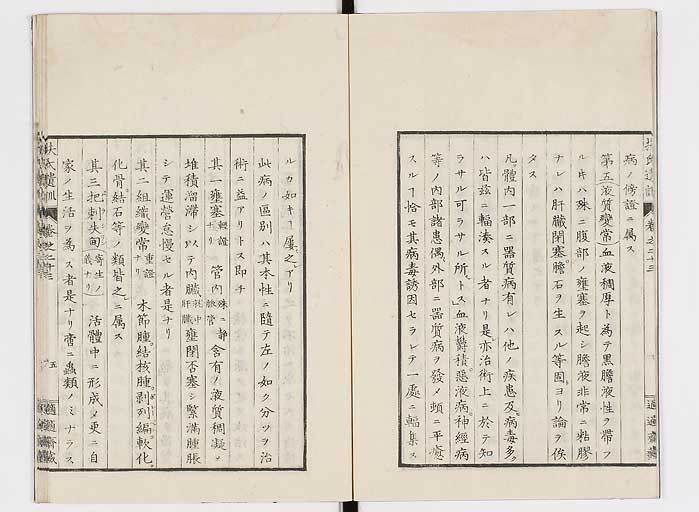 病ノ傍證ニ属ス
第五液質變常血液稠厚ト為テ黒膽液性ヲ帶フ
ルキハ殊ニ腹部ノ壅塞ヲ起シ膽液非常ニ粘膠
ナレハ肝臟閉塞膽石ヲ生スル等固ヨリ論ヲ俟
タス
凡體内一部ニ器質病有レハ他ノ疾患及病毒多ク
ハ皆玆ニ輻湊スル者ナリ是亦治術上ニ於テ知
ラサル可ラサル所トス血液鬱積惡液病神經病
等ノ内部諸患偶外部ニ器質病ヲ發メ頓ニ平癒
スルㄱ恰モ其病毒誘因セラレテ一處ニ輻集ス
ルカ如キㄱ屢之アリ
此病ノ區別ハ其本性ニ隨テ左ノ如ク分ツヲ治
術ニ益アリトス即チ
其一壅塞輕證ナリ 管内殊ニ靜脈管含有ノ液質稠凝メ
堆積溜滞シ以テ内臟就中肝臟壅閉否塞シ緊滿腫脹
シテ運營怠慢セル者是ナリ
其二組織變常重證ナリ 木節腫結核腫剥列編軟化
化骨結石等ノ類皆之ニ属ス
其三把剌失甸寄生ノ義ナリ 活體中ニ形成メ更ニ自
家ノ生活ヲ為ス者是ナリ啻ニ蟲類ノミナラス
扶氏遺訓 卷之二十三
五
適適齋藏